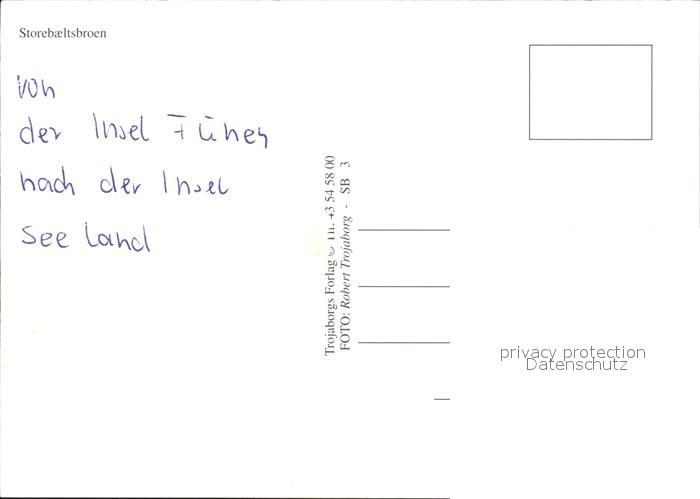 Storebæltsbroen
von
der Insel Fünen
nach der Insel
see land
Trojaborgs Forlag © Tlf. +3 54 58 00
FOTO: Robert Trojaborg - SB 3
privacy protection
Datenschutz